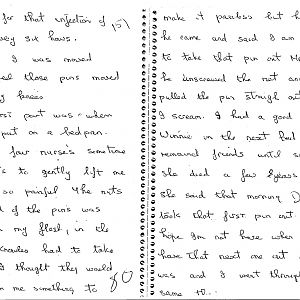 for that injection of
every six hours.
I was moved
those pins moved
my knees
worst part was when
put on a bedpan.
four nurse's sometime
to gently lift me
so painful The nuts
of the pins was
my flesh, in the
had to take
I thought they would
me something to
80
make it painless but h
he came and said I am
to take that pin out
he unscrewed the nut an
pulled the pin straigh out
I scream. I had a good
Winnie in the next bed
remained friends until s
she died a few years
she said that morning D
took that first pin out
hope Im not here when
have that next one out
was and I went through
same to..